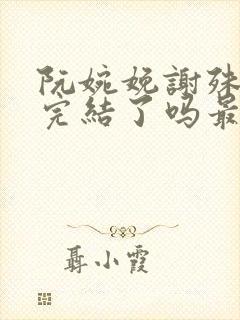 阮婉娩謝殊
完結了吗最
聶小霞